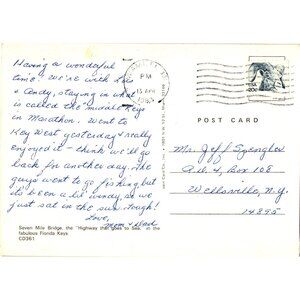 Having a wonderful
time. We're with Lois
& Andy, staying in what
is called the middle Keys
in Marathon. Went to
Key West yesterday & really
enjoyed it - think we'll go
back for another day. The
guys went to go fishing but
its been a lil windy, so we
just sat in the sun - tough!
Love,
Mom & Dad
Seven Mile Bridge, the "Highway that goes to Sea," in the
fabulous Florida Keys
C0361
PM
13 APR
POST CARD
Mr. Jeff Spengler
R.D. 4, Box 108
Wellsville, N.Y.
14895